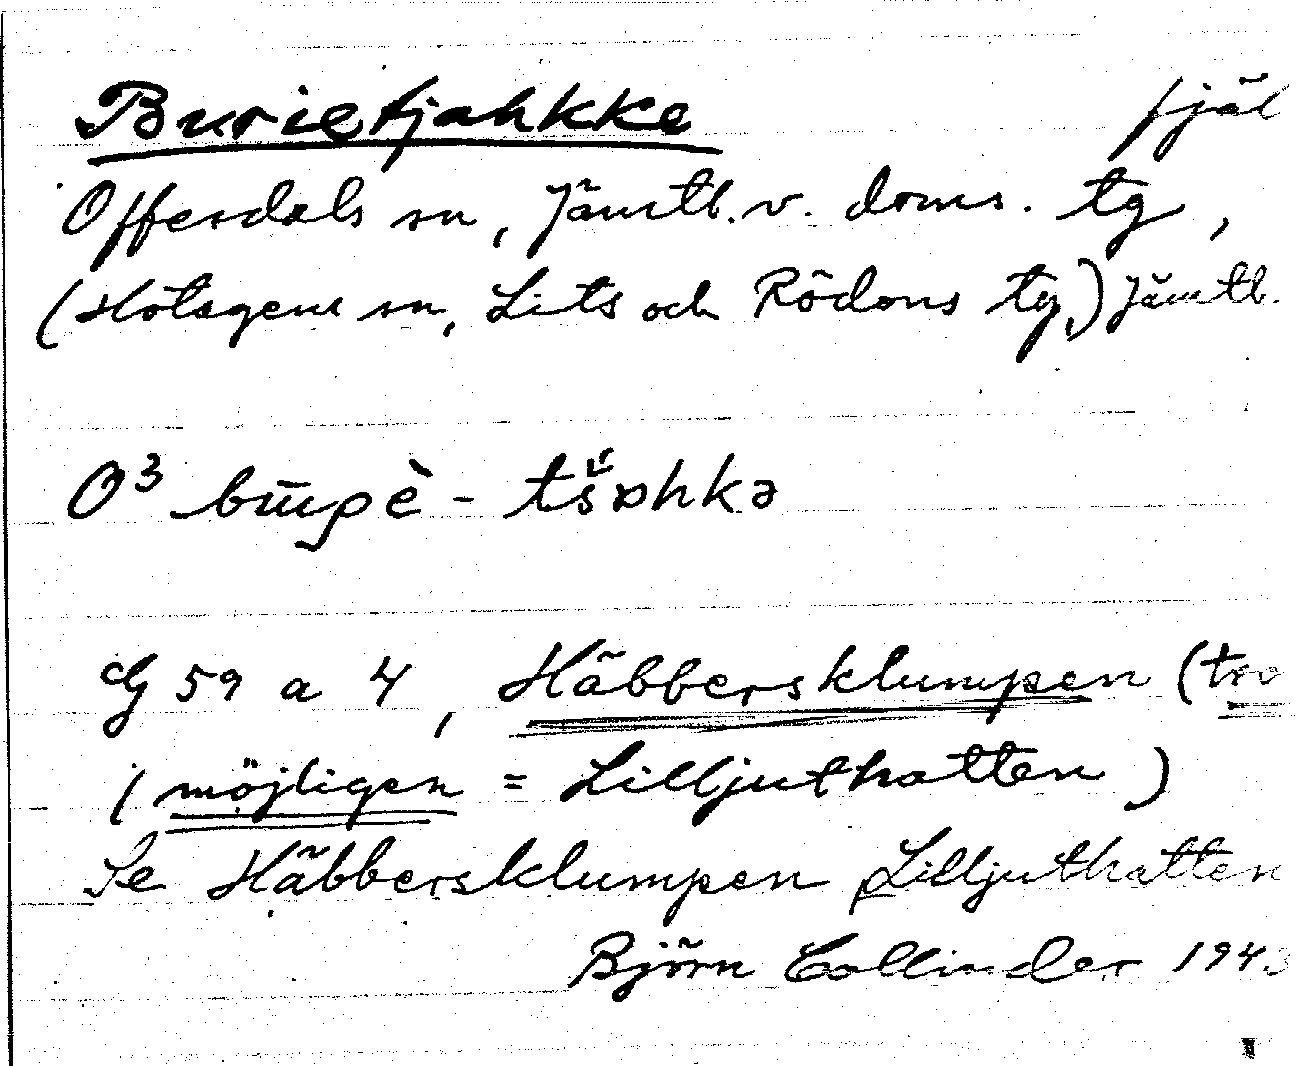 Burietjahkke fjäl
Offerdals sn, Jämtl. v. doms. tg,
(Hotagens sn, Lits och Rödöns tg,) Jämtl.
O³ - 
G 59 a 4, Häbbersklumpen (tro
(möjligen = Lilljuthatten)
Se Häbbersklumpen, Lilljuthatten
Björn Collinder 1943